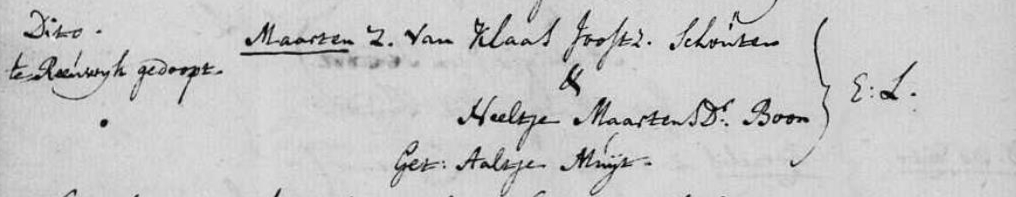 Dito.
te Reeuwyk gedoopt.
Maarten Z. van Klaas Joostz. Schouten
&
Neeltje MaartensDr. Boon
Get: Aaltje Muijt.
E: L.